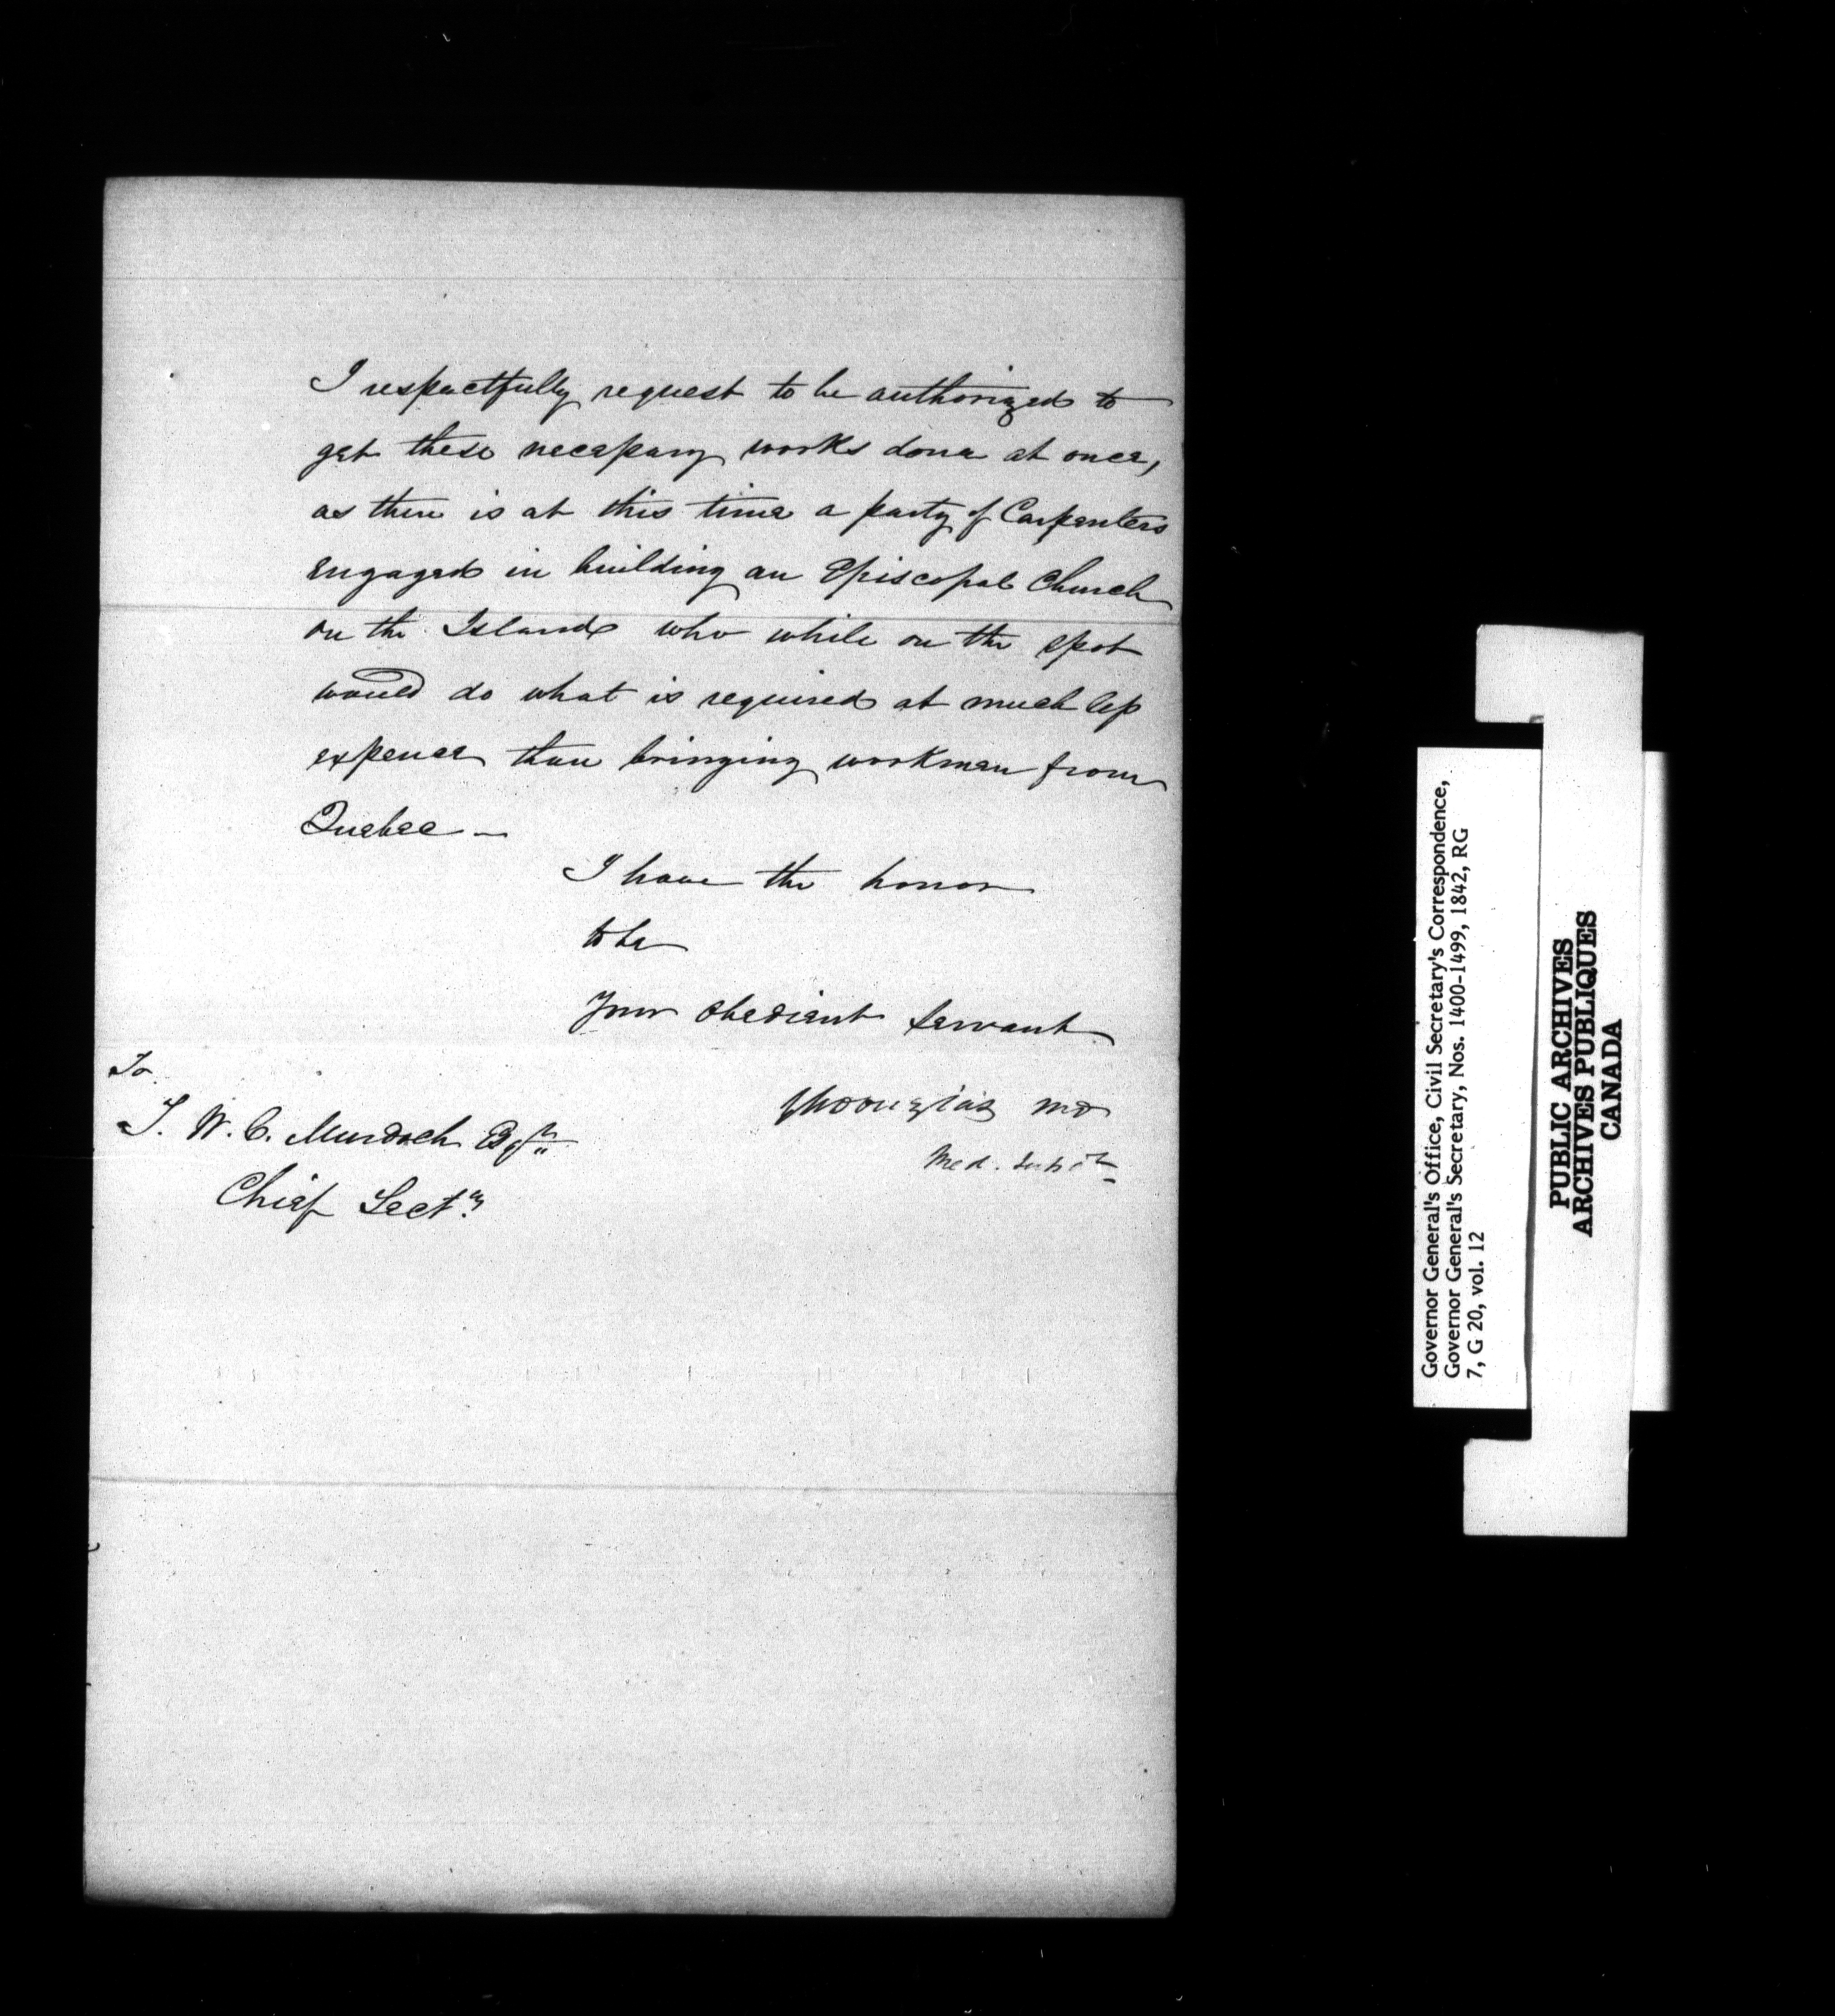 I respectfully request to be authorized to
get these necessary works done at once,
as there is at this time a party of Carpenters
engaged in building an Episcopal Church
on the Island who while on the spot
would do what is required at much less
expence than bringing workmen from
Quebec —
I have the honor
to be
Your Obedient Servant
GM Douglas MD
Med. Supt
To
T. W. C. Murdoch Esqr
Chief Secty
Governor General's Office, Civil Secretary's Correspondence,
Governor General's Secretary, Nos. 1400-1499, 1842, RG
7, G 20, vol. 12
PUBLIC ARCHIVES
ARCHIVES PUBLIQUES
CANADA